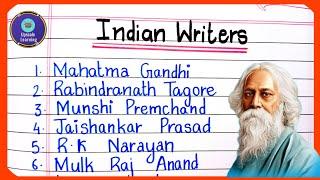 Indian Writers
1. Mahatma Gandhi
2. Rabindranath Tagore
3. Munshi Premchand
4. Jaishankar Prasad
5. R.K Narayan
6. Mulk Raj Anand